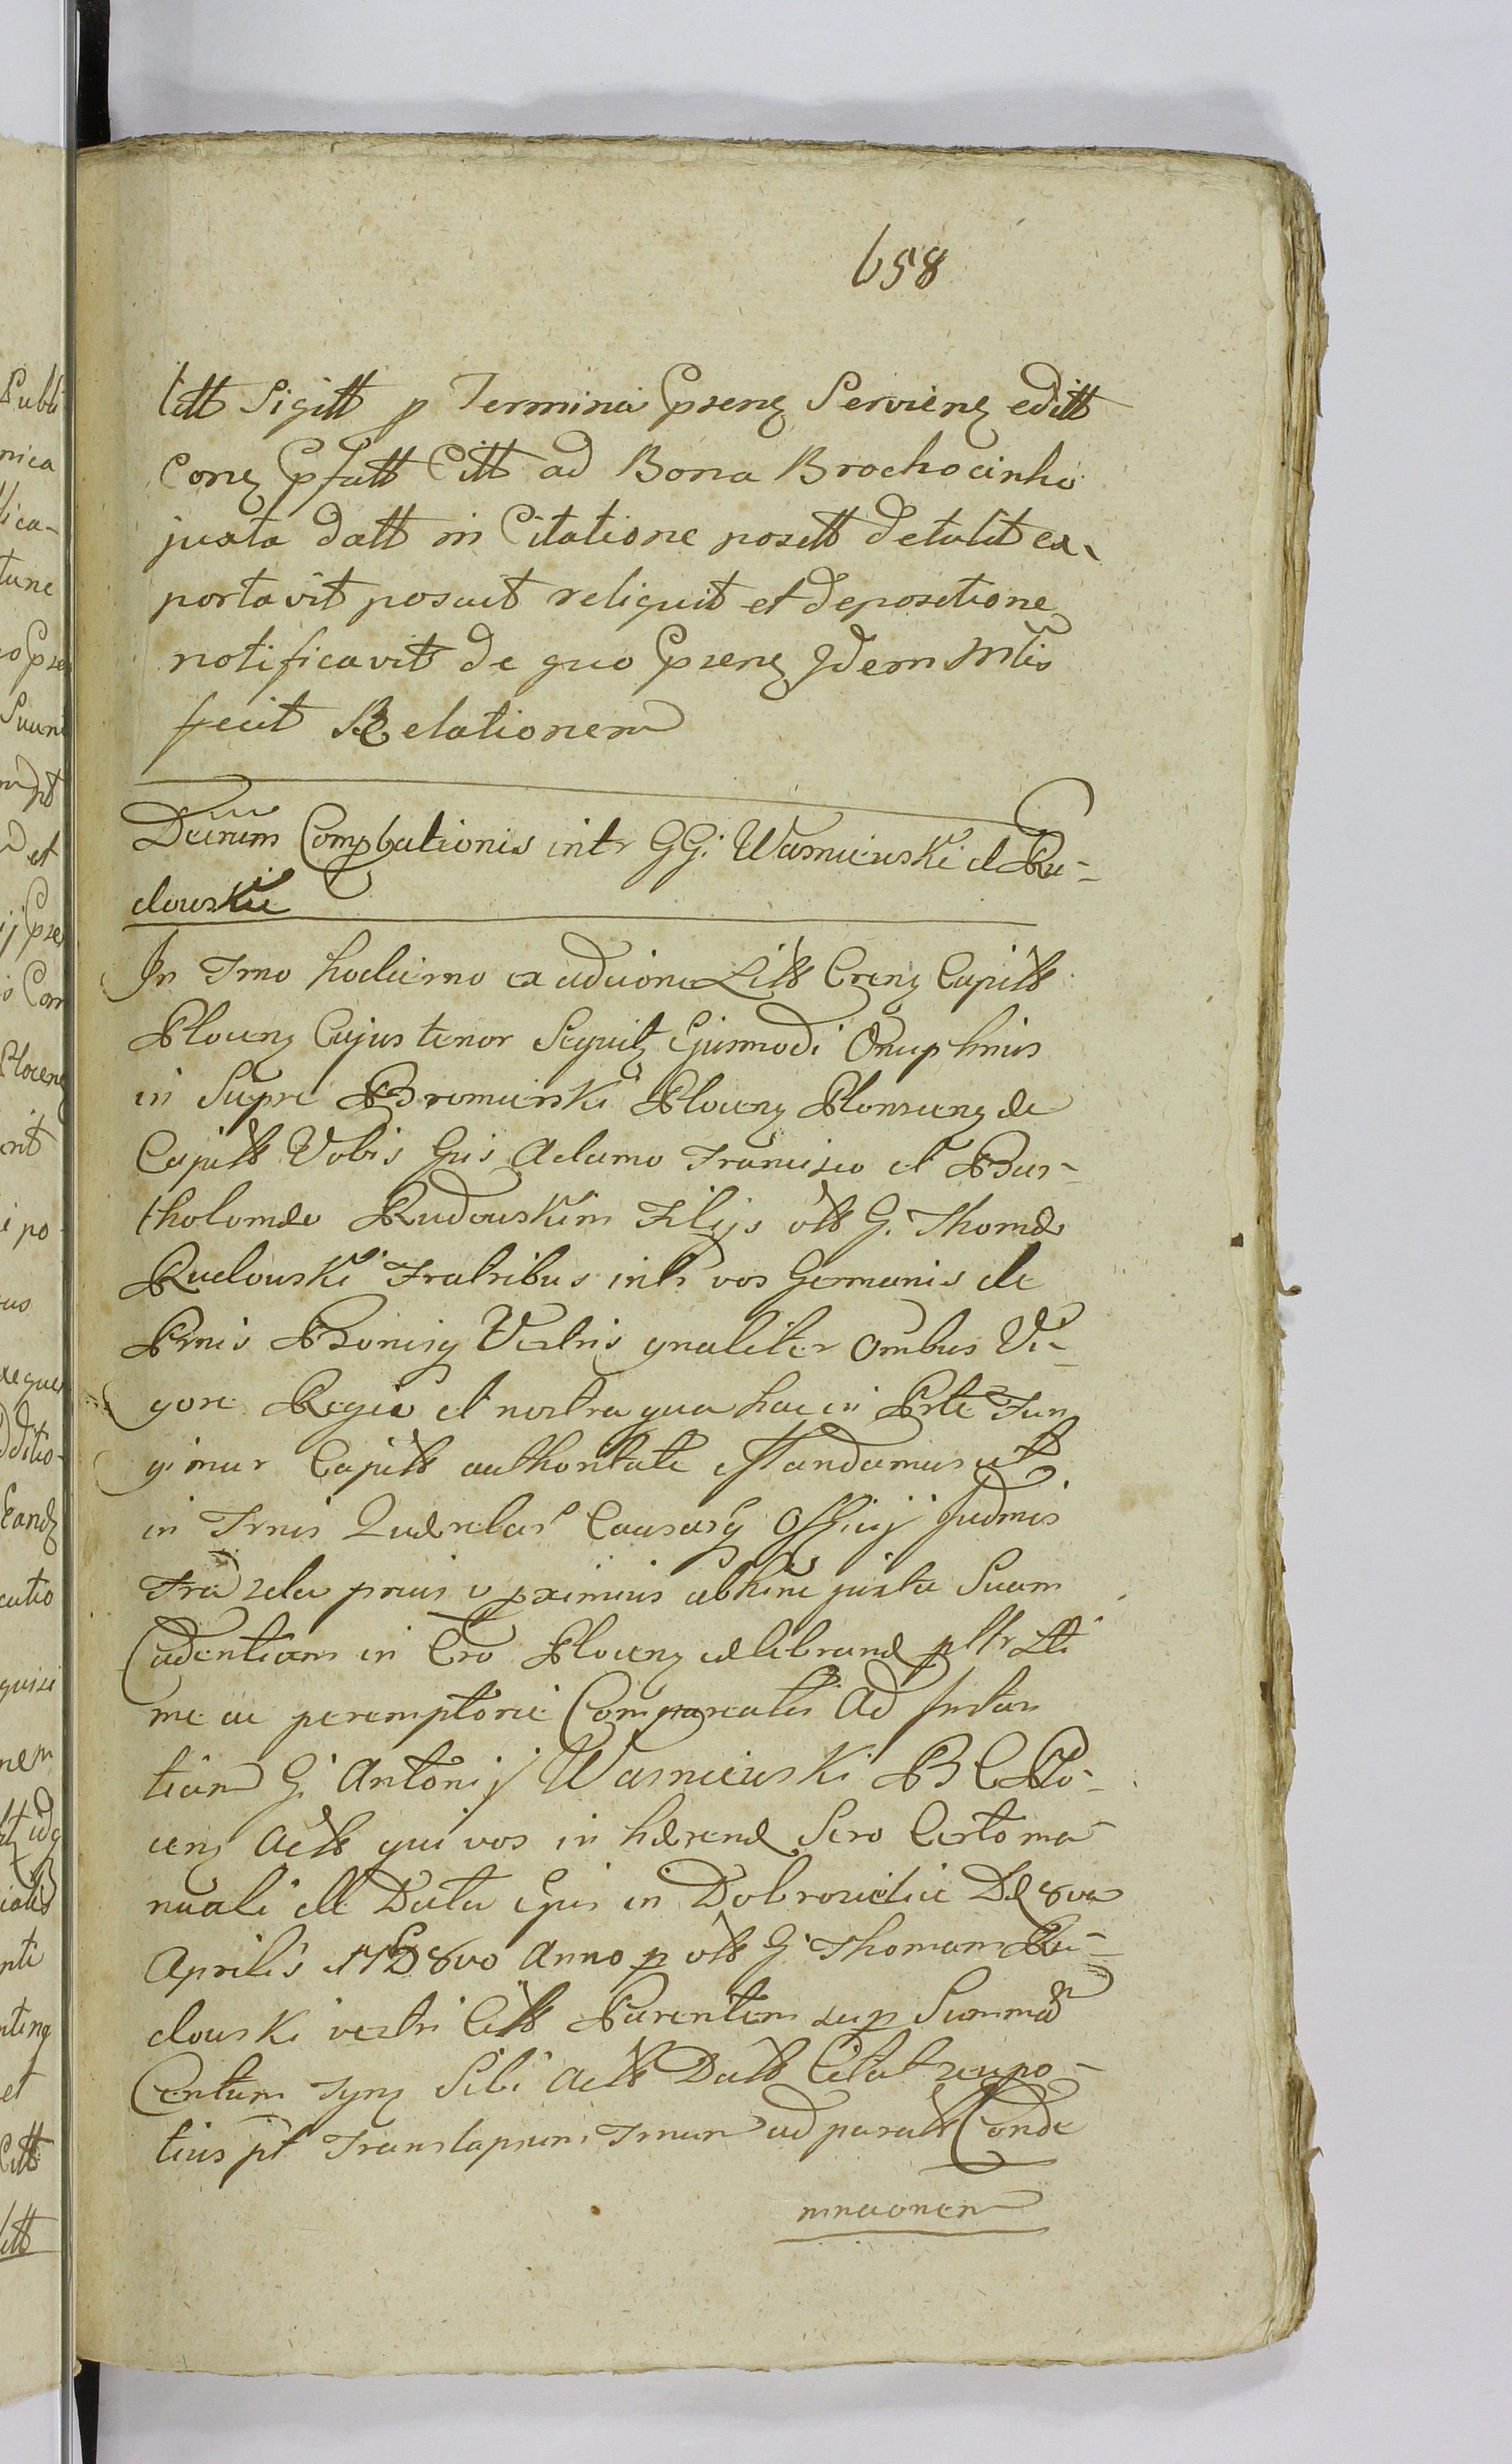 658
litt Sigitt p Termina Prenz Servienz editt
Conz Pfatt Citt ad Bona Brochocinko
juxta datt in Citatione positt detulit ex-
portavit posuit reliquit et depositione
notificavit de quo Prenz Idem Mlis
fecit Relationem
Decrum Compbationis intr GG. Wasniewski et Ru-
dowskie
In Trno hodierno ex adcione Litt Crenz Capitt
Plocenz Cujus tenor Sequitz Ejusmodi Onuphrius
in Supre Bromierski Plocenz Plonscenz de
Capitt Vobis Gis Adamo Francisco et Bar-
tholomæo Rudowskim Filijs olt G. Thomæ
Rudowski Fratribus intr vos Germanis de
Prnis Bonisq Vestris gnaliter ombus Vi-
gore Regia et nostra qua hac in Prte Fun
gimur Capitt authoritate Mandamus utt
in Trnis Quærelar Causarq Officij Judmis
Fra 2da prius v pximius abhinc juxta Suam
Cadentiam in Cro Plocenz celebrand pltr Lti
me ac peremptorie Compareatis Ad Instan
tiam G. Antonij Wasniewski B C Plo-
cenz Actt qui vos in hærend Scro Certo ma-
nuali de Data Ejus in Dobrosielice D 8va
Aprilis 17 8vo Anno p olt G. Thomam Ru-
dowski vestri Citt Parentem sup Summā
Centum Tynz Sibi Actt Datt Citat seu po-
tius pt Translapsum Trnum ad paratt Conde
mnaonem